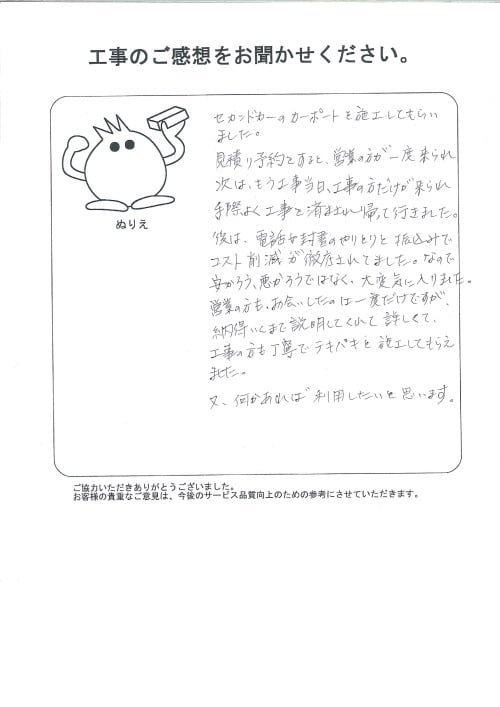 工事のご感想をお聞かせください。
セカンドカーのカーポートを施工してもらい
ました。
見積り予約をすると、営業の方が一度来られ
次は、もう工事当日、工事の方だけが来られ
手際よく工事を済まされ帰って行きました。
後は、電話や封書のやりとりと振込みで
コスト削減が徹底されてました。なので
安かろう、悪かろうではなく、大変気に入りました。
営業の方も、お会いしたのは一度だけですが、
納得いくまで説明してくれて詳しくて、
工事の方も丁寧でテキパキと施工してもらえ
ました。
又、何かあれば利用したいと思います。
ぬりえ
ご協力いただきありがとうございました。
お客様の貴重なご意見は、今後のサービス品質向上のための参考にさせていただきます。